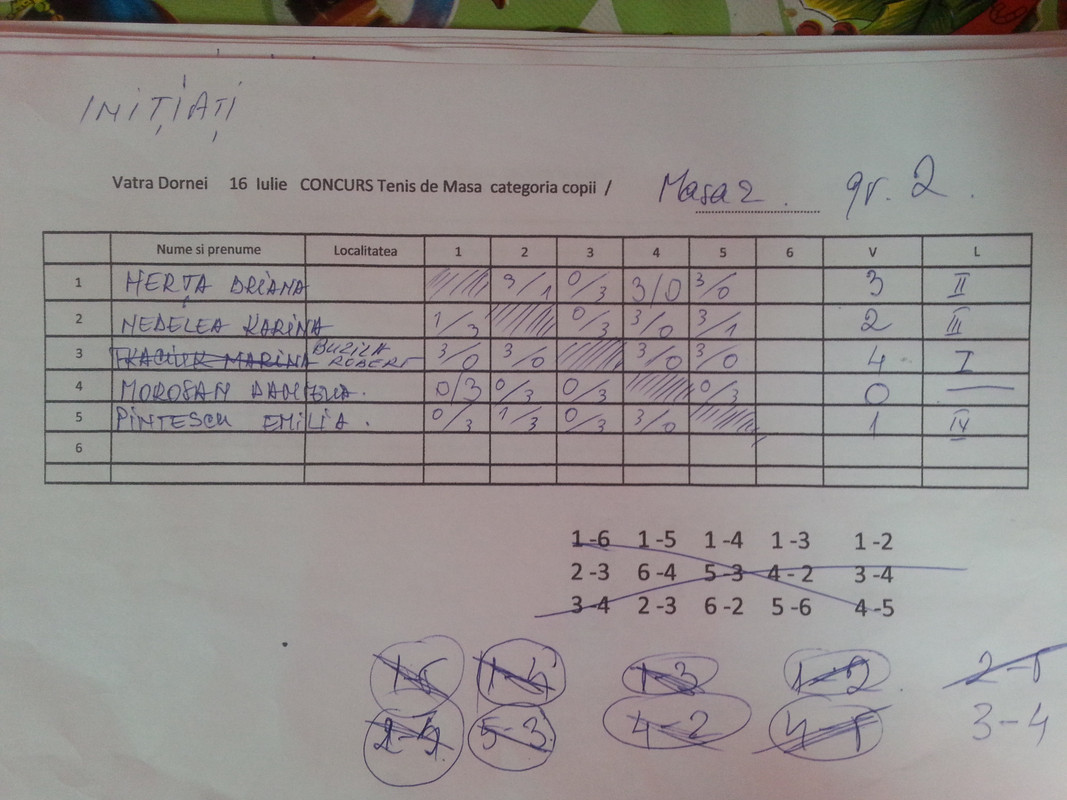 INIȚIAȚI
Vatra Dornei 16 Iulie CONCURS Tenis de Masa categoria copii / Masa 2 gr. 2.
Nume si prenume Localitatea 1 2 3 4 5 6 V L
1 HERȚA BRIANA 3/1 0/3 3/0 3/0 3 II
2 NEDELEA KARINA 1/3 0/3 3/0 3/1 2 III
3 MARINA BUZILA ROBERT 3/0 3/0 3/0 3/0 4 I
4 MOROSAN 0/3 0/3 0/3 0/3 0 —
5 PINTESCU EMILIA. 0/3 1/3 0/3 3/0 1 IV
6
1 -6 1 -5 1 -4 1 -3 1 -2
2 -3 6 -4 5 -3 4 - 2 3 -4
3 -4 2 -3 6 -2 5 -6 4 -5
1-5 1-4 1-3 1-2 2-5
5-3 4-2 4-5 3-4